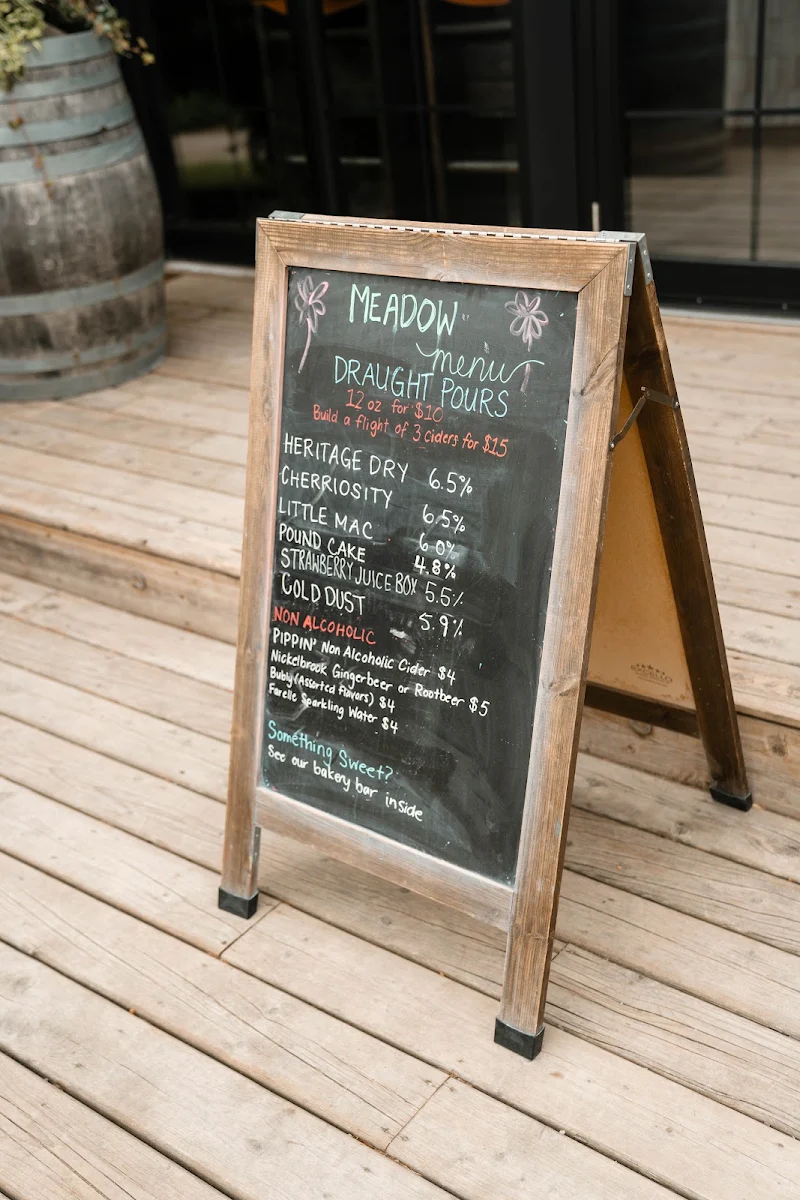 MEADOW
menu
DRAUGHT POURS
12 oz for $10
Build a flight of 3 ciders for $15
HERITAGE DRY 6.5%
CHERRIOSITY 6.5%
LITTLE MAC 6.0%
POUND CAKE 4.8%
STRAWBERRY JUICE BOX 5.5%
GOLD DUST 5.9%
NON ALCOHOLIC
PIPPIN' Non Alcoholic Cider $4
Nickelbrook Gingerbeer or Rootbeer $5
Bubly (Assorted flavors) $4
Farelle Sparkling Water $4
Something Sweet?
See our bakery bar inside